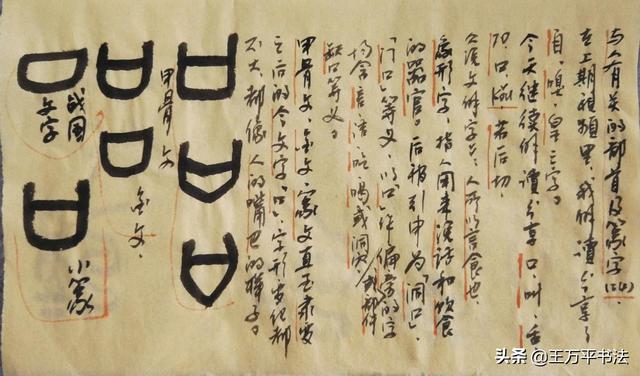 与人有关的部首及篆字(24)。
在上期视频里,我们解读分享了
自、皇三字。
今天继续解读分享口、叫、舌。
口,苦后切。
汉文解字:人所以言食也。
象形字,指人用来说话和饮食
的器官。后被引申为「洞口」、
「门口」等义,以「口」作偏旁的字
均含言语、吃喝或洞穴
缺口等义。
甲骨文、金文、篆文直至隶变
之后的今文字「口」字形变化都
不大都像人的嘴巴的样子。
甲骨文
金文。
战国
文字
小篆
头条@王万平书法